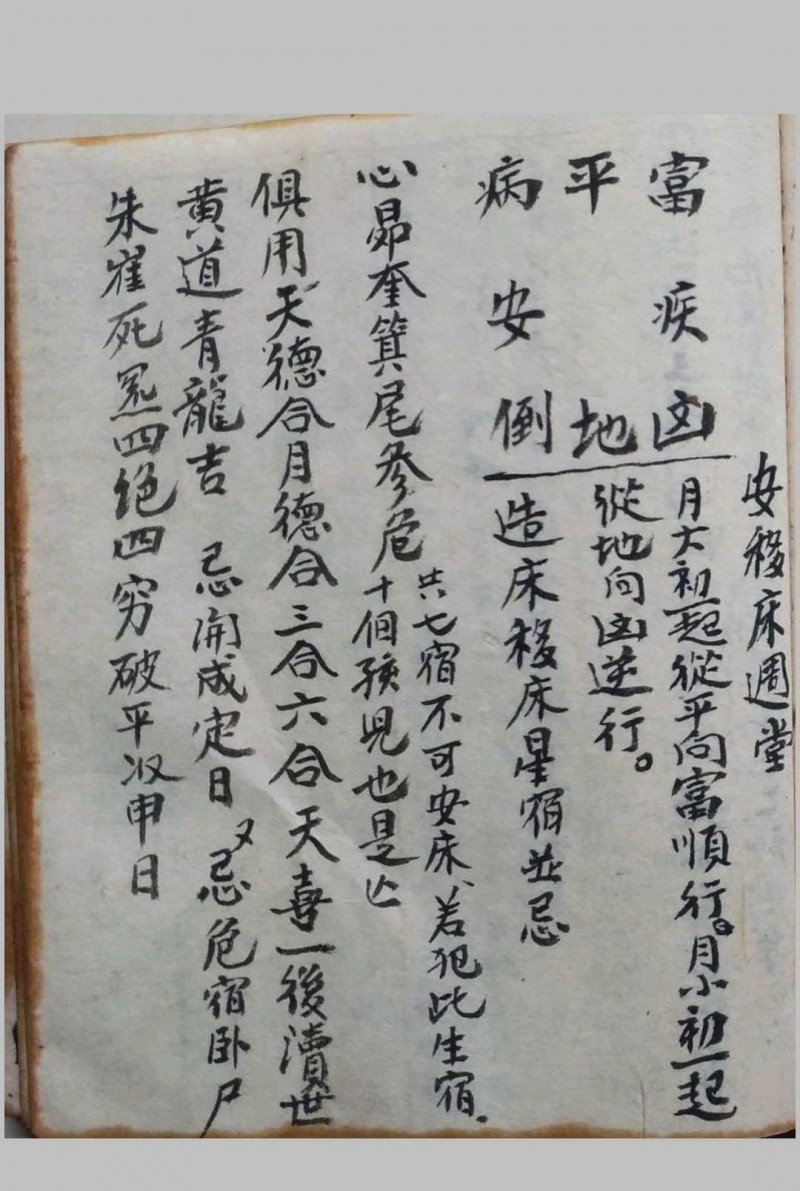 安移床週堂
富 疾 凶
平 地
病 安 倒
月大初一起從平向富順行。月小初一起
從地向凶逆行。
造床移床星宿並忌
心昴奎箕尾參危
共七宿不可安床、若犯此生宿.
十個孩児也是亡
俱用天德合月德合三合六合天喜一後瀆世
黄道青龍吉 忌開成定日 又忌危宿卧尸
朱崔死炁四绝四穷破平收申日